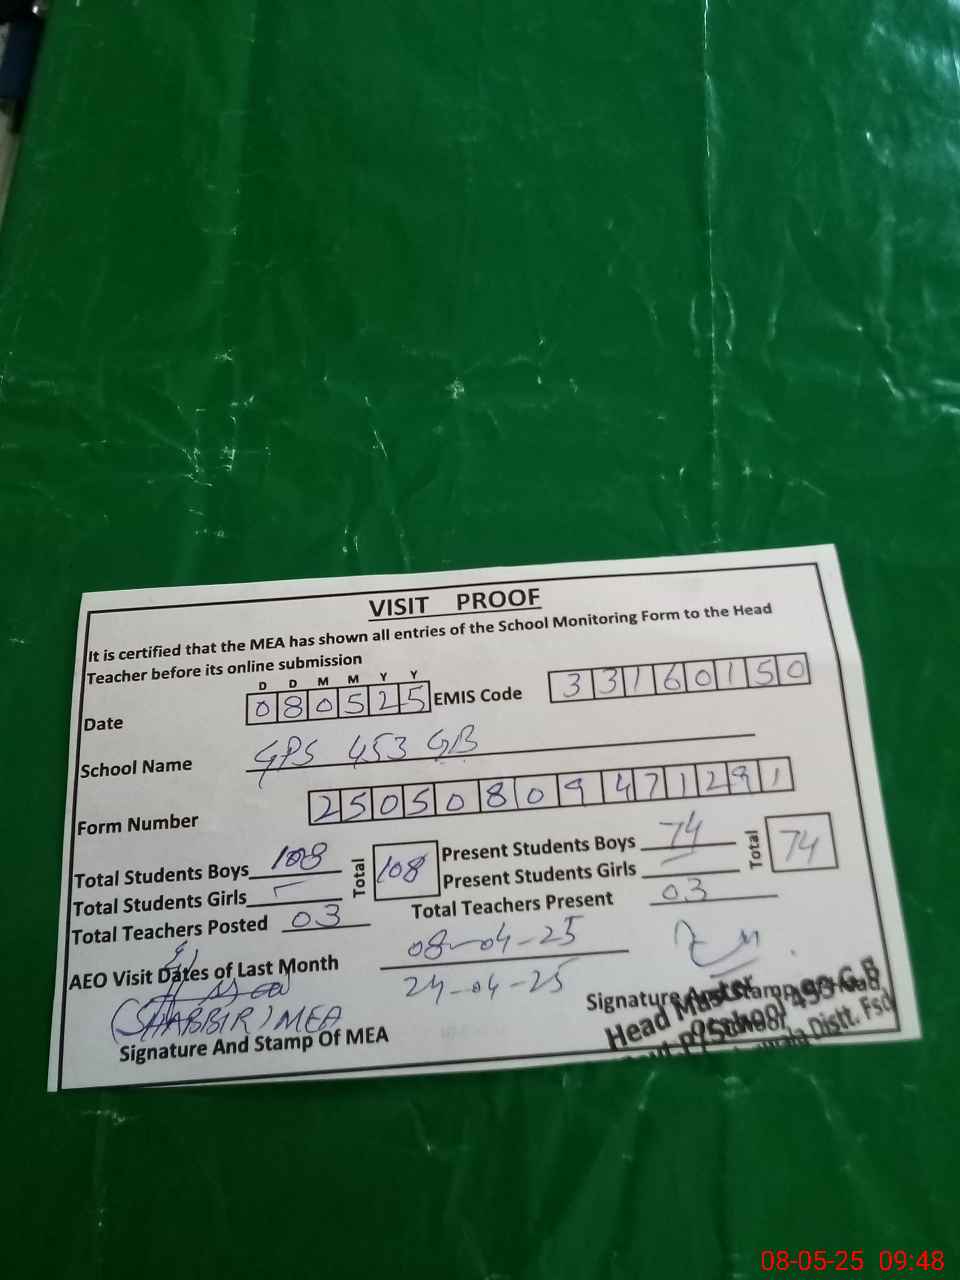 VISIT PROOF
It is certified that the MEA has shown all entries of the School Monitoring Form to the Head
Teacher before its online submission
D D M M Y Y
Date 080525 EMIS Code 33160150
School Name GPS 453 GB
Form Number 25050809471291
Total Students Boys 108 Total 108 Present Students Boys 74 Total 74
Total Students Girls – Present Students Girls –
Total Teachers Posted 03 Total Teachers Present 03
AEO Visit Dates of Last Month 08-04-25
24-04-25
(SHABBIR) MEA
Signature And Stamp Of MEA
Signature And Stamp
Head Master
School 453 G.B
Distt. Fsd
08-05-25 09:48